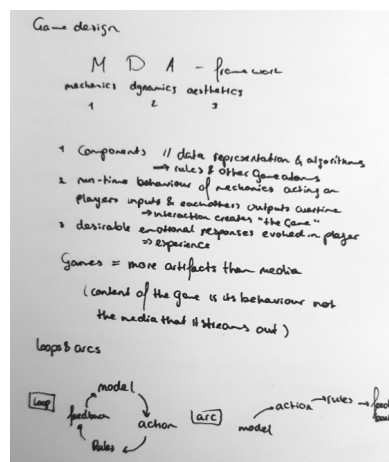 Game design
M D A - framework
mechanics dynamics aesthetics
1 2 3
1 Components // data representation & algorithms
→ rules & other game atoms
2 run-time behaviour of mechanics acting on
players inputs & eachothers outputs overtime
→ interaction creates "the Game"
3 desirable emotional responses evoked in player
=> experience
Games = more artifacts than media
(content of the game is its behaviour not
the media that it streams out)
loops & arcs
Loop
model
action
Rules
feedback
arc
model
action → rules → feed
back